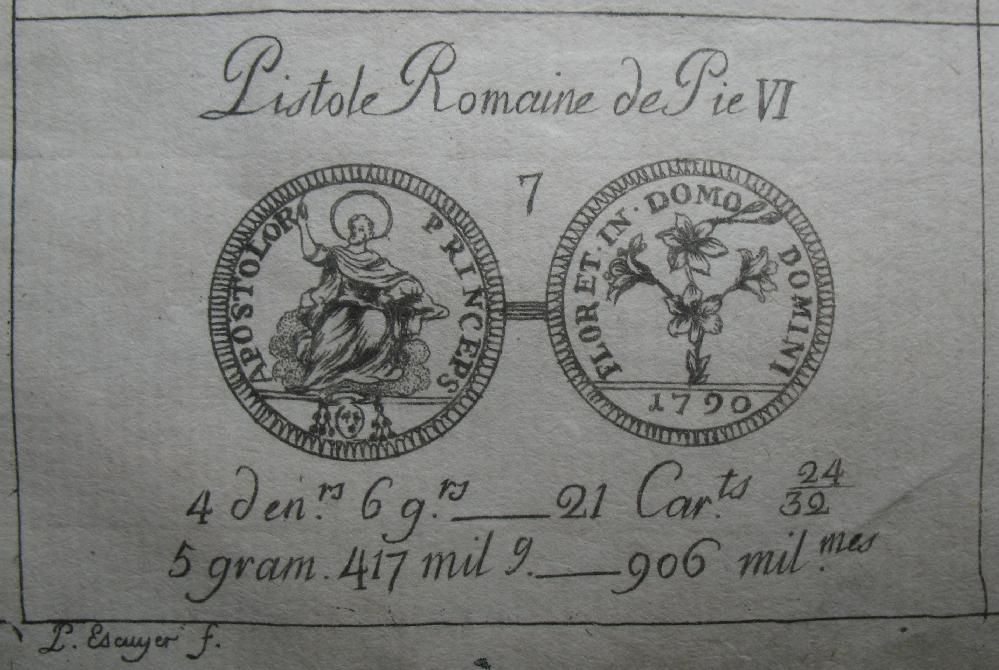 Pistole Romaine de Pie VI
7
APOSTOLOR PRINCEPS
FLORET·IN·DOMO DOMINI
1790
4 den.rs 6 g.rs 21 Car.ts 24/32
5 gram. 417 mil g. 906 mil.mes
P. Escuyer f.